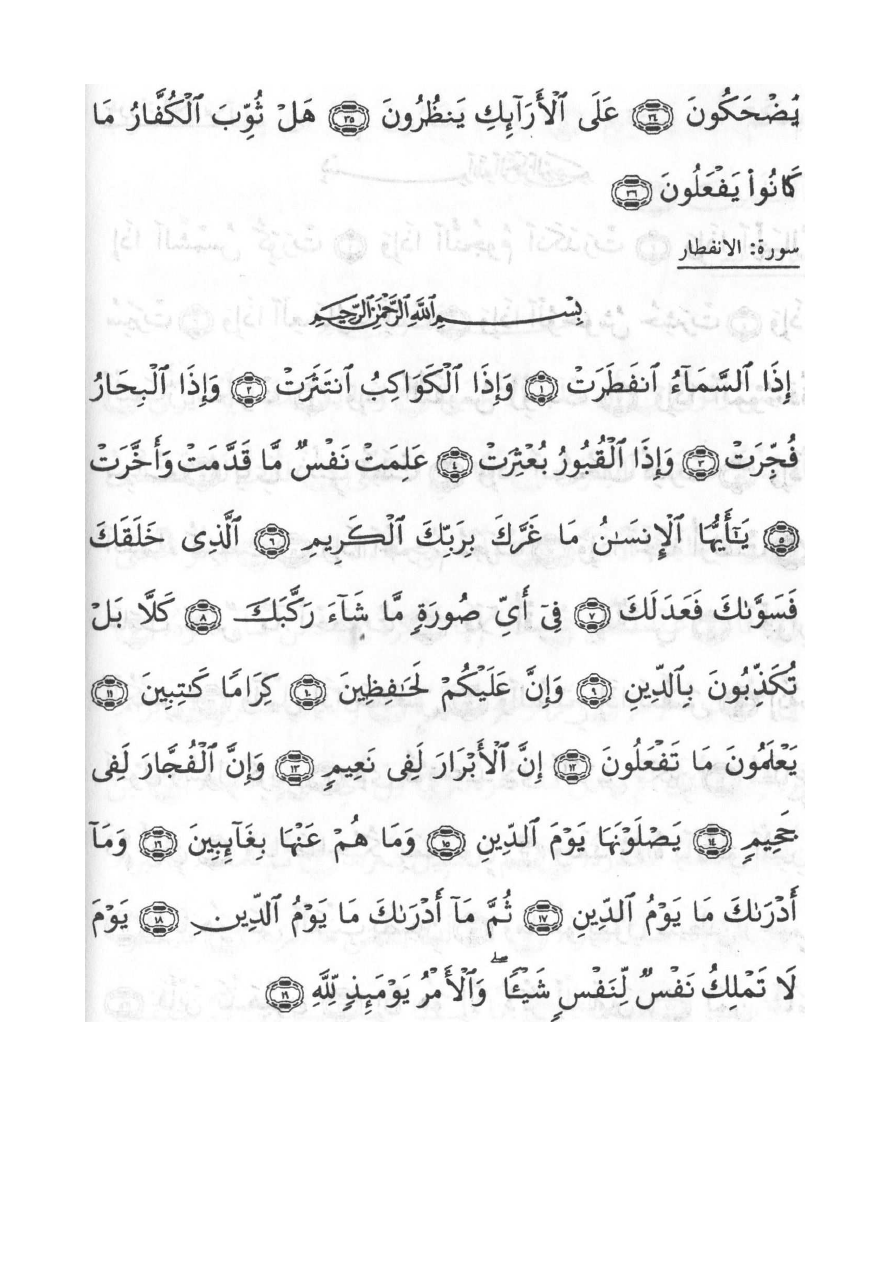 يَضْحَكُونَ ٣٤ عَلَى ٱلْأَرَآئِكِ يَنظُرُونَ ٣٥ هَلْ ثُوِّبَ ٱلْكُفَّارُ مَا
كَانُوا۟ يَفْعَلُونَ ٣٦
سورة: الانفطار
بِسْمِ ٱللَّهِ ٱلرَّحْمَٰنِ ٱلرَّحِيمِ
إِذَا ٱلسَّمَآءُ ٱنفَطَرَتْ ١ وَإِذَا ٱلْكَوَاكِبُ ٱنتَثَرَتْ ٢ وَإِذَا ٱلْبِحَارُ
فُجِّرَتْ ٣ وَإِذَا ٱلْقُبُورُ بُعْثِرَتْ ٤ عَلِمَتْ نَفْسٌ مَّا قَدَّمَتْ وَأَخَّرَتْ
٥ يَٰٓأَيُّهَا ٱلْإِنسَٰنُ مَا غَرَّكَ بِرَبِّكَ ٱلْكَرِيمِ ٦ ٱلَّذِى خَلَقَكَ
فَسَوَّىٰكَ فَعَدَلَكَ ٧ فِىٓ أَىِّ صُورَةٍ مَّا شَآءَ رَكَّبَكَ ٨ كَلَّا بَلْ
تُكَذِّبُونَ بِٱلدِّينِ ٩ وَإِنَّ عَلَيْكُمْ لَحَٰفِظِينَ ١٠ كِرَامًا كَٰتِبِينَ ١١
يَعْلَمُونَ مَا تَفْعَلُونَ ١٢ إِنَّ ٱلْأَبْرَارَ لَفِى نَعِيمٍ ١٣ وَإِنَّ ٱلْفُجَّارَ لَفِى
جَحِيمٍ ١٤ يَصْلَوْنَهَا يَوْمَ ٱلدِّينِ ١٥ وَمَا هُمْ عَنْهَا بِغَآئِبِينَ ١٦ وَمَآ
أَدْرَىٰكَ مَا يَوْمُ ٱلدِّينِ ١٧ ثُمَّ مَآ أَدْرَىٰكَ مَا يَوْمُ ٱلدِّينِ ١٨ يَوْمَ
لَا تَمْلِكُ نَفْسٌ لِّنَفْسٍ شَيْـًٔا ۖ وَٱلْأَمْرُ يَوْمَئِذٍ لِّلَّهِ ١٩